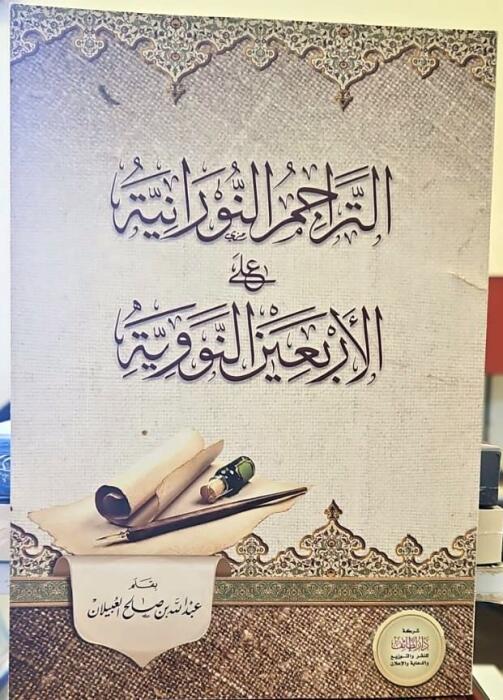 التَّرَاجِمُ النُّورَانِيَّةُ
عَلَى
الأَرْبَعِينَ النَّوَوِيَّةِ
بقلم
عبد الله بن صالح العبيلان
شركة
دار اللطائف
للنشر والتوزيع
والدعاية والإعلان